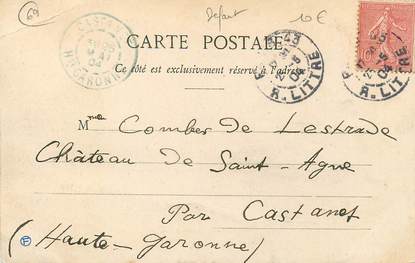 69
Defaut
10€
CARTE POSTALE
Ce côté est exclusivement réservé à l'adresse
CASTANET
Hte GARONNE
43
R. LITTRÉ
R. LITTRÉ
Mme Combes de Lestrade
Château de Saint-Agne
Par Castanet
(Haute-Garonne)